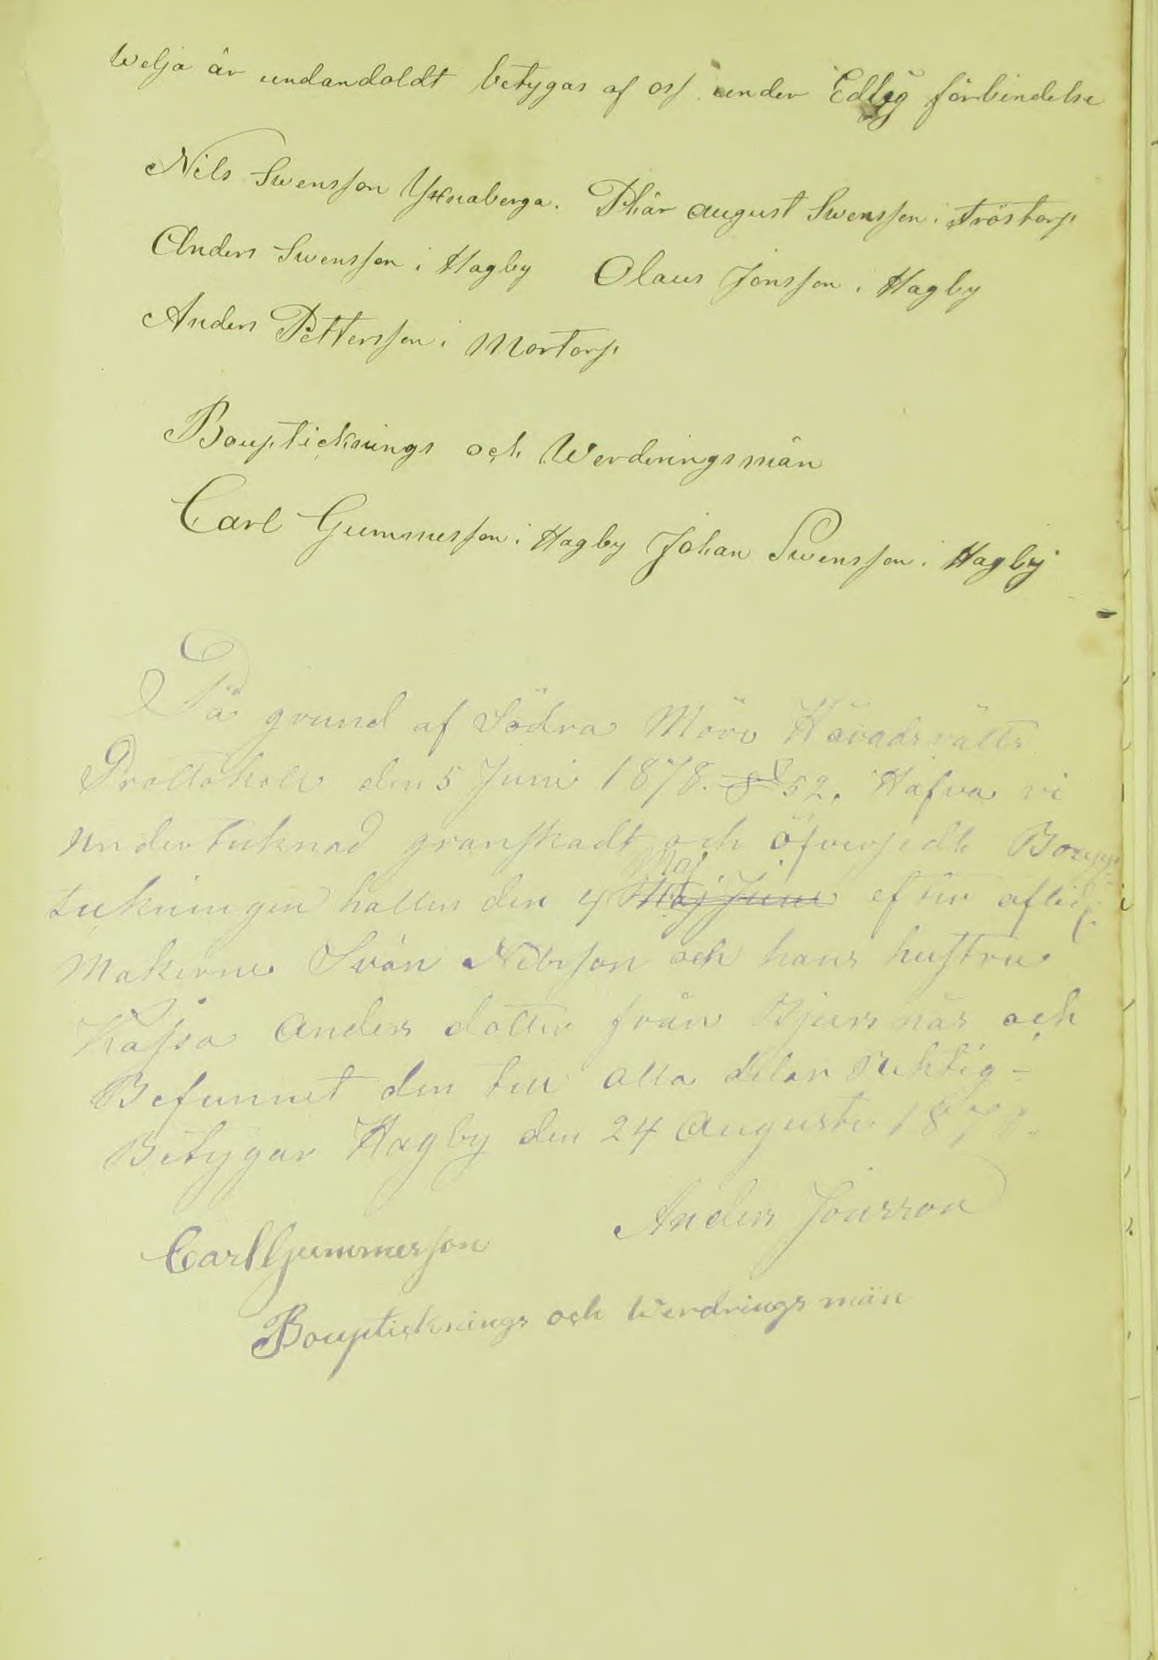 Welja är undandoldt betygas af oss under Edlig förbindelse
Nils Swensson Yxnaberga. Phär august Swensson i Tröstorp
Anders Swensson i Hagby Olaus Jonsson i Hagby
Anders Pettersson i Mortorp
Bouptícknings och Werderingsmän
Carl Gummesson i Hagby Johan Swensson i Hagby
På grund af Södra Möre Häradsrätts
Prottokoll den 5 Juni 1878. § 52. Hafva vi
undertecknad granskadt och öfversedt Boupp
teckningen hållen den 4 Maj efter aflid
Makerne Svän Nilsson och hans hustru
Kajsa Anders dotter från Bjursnäs och
Befunnet den till alla delar Ricktig-
Betygar Hagby den 24 Augusti 1878.
Carl Gummesson Anders Jonsson
Bouptícknings och Werdrings män